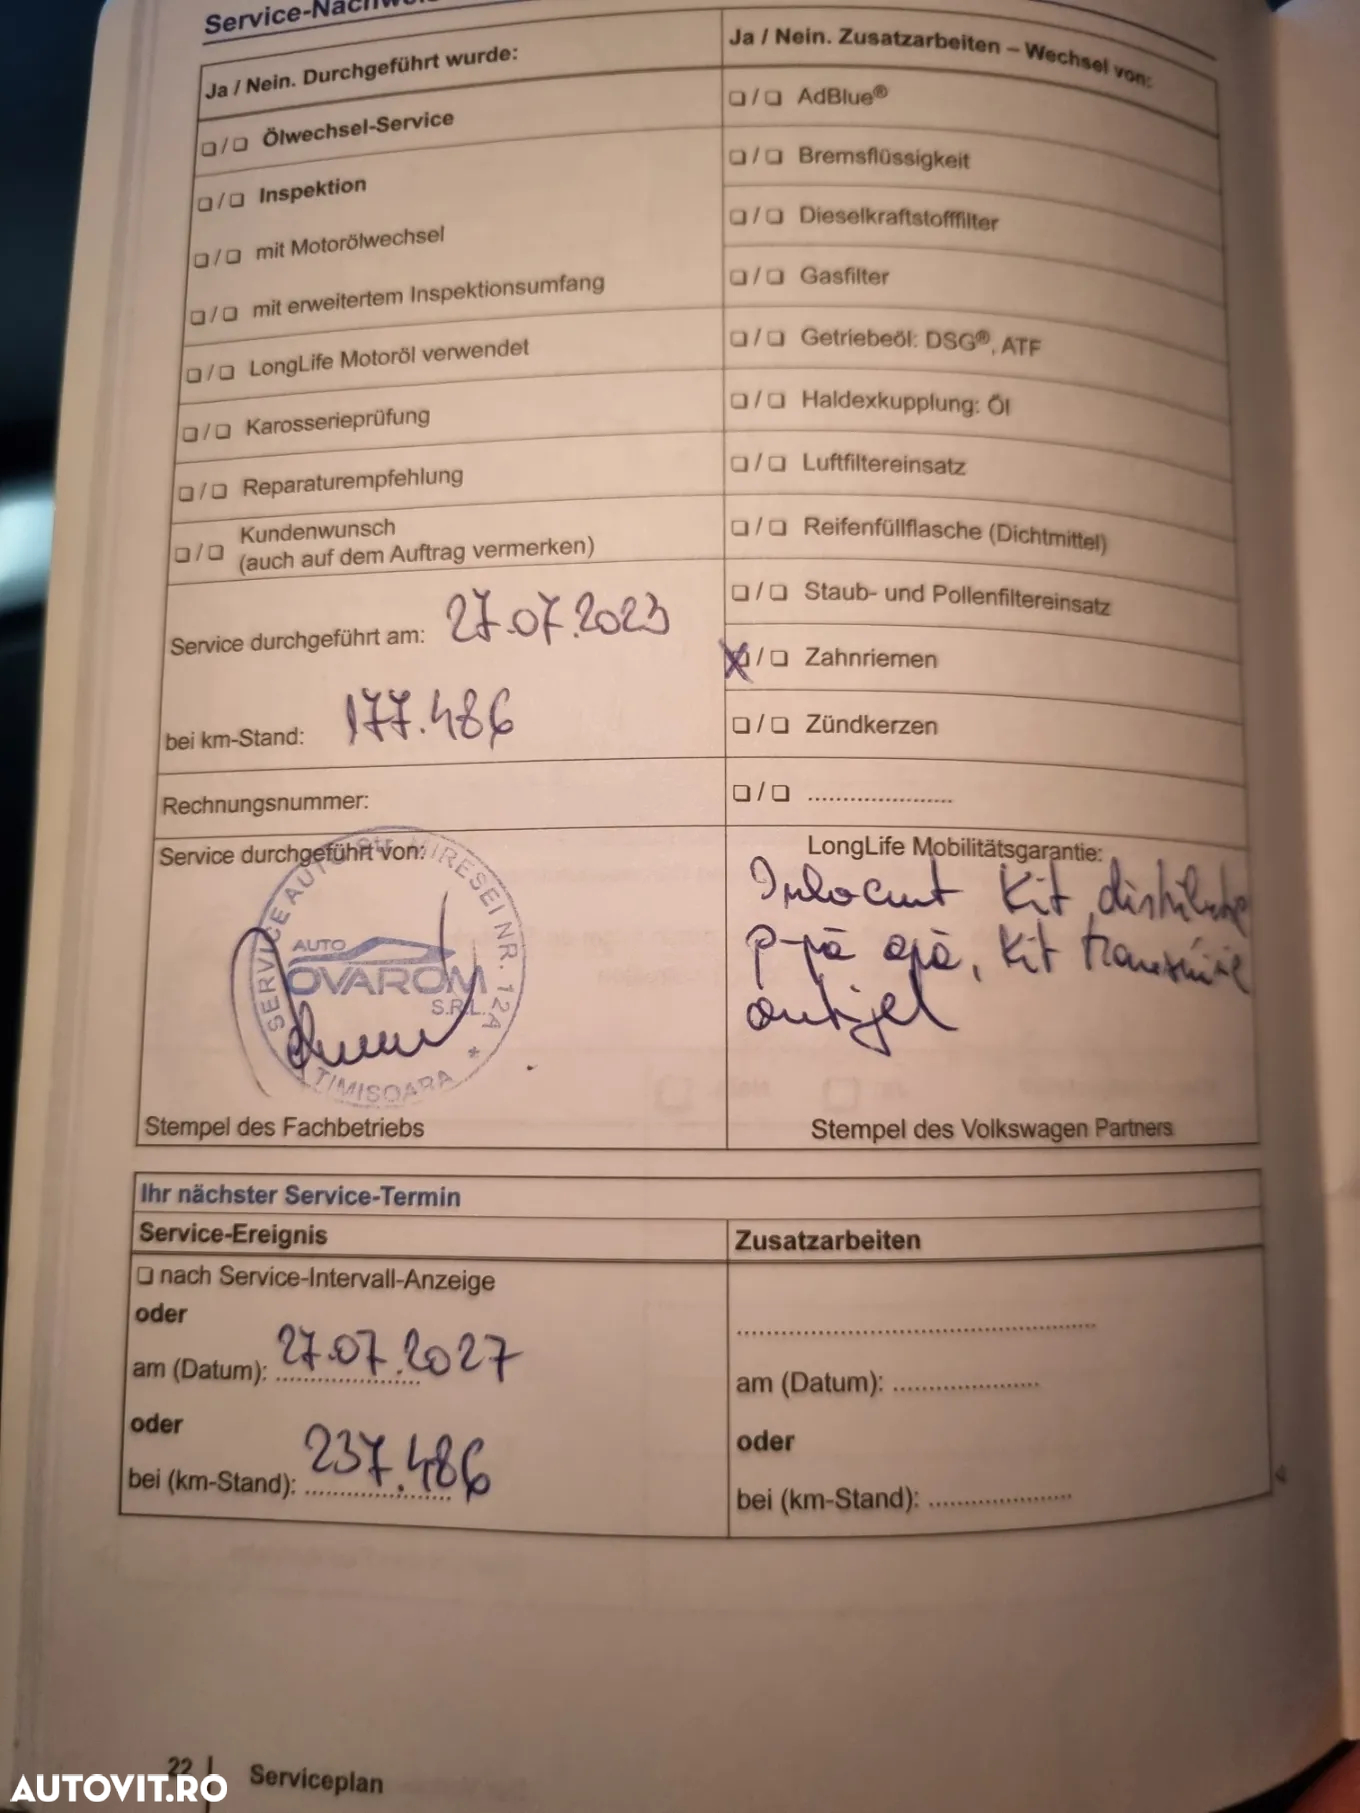 Service-Nachweis
Ja / Nein. Durchgeführt wurde:
❏ / ❏ Ölwechsel-Service
❏ / ❏ Inspektion
❏ / ❏ mit Motorölwechsel
❏ / ❏ mit erweitertem Inspektionsumfang
❏ / ❏ LongLife Motoröl verwendet
❏ / ❏ Karosserieprüfung
❏ / ❏ Reparaturempfehlung
❏ / ❏ Kundenwunsch
(auch auf dem Auftrag vermerken)
Service durchgeführt am: 27.07.2023
bei km-Stand: 177.486
Rechnungsnummer:
Service durchgeführt von:
SERVICE AUTO Str. MIRESEI NR. 12A *
AUTO
OVAROM
S.R.L.
TIMISOARA
Stempel des Fachbetriebs
Ja / Nein. Zusatzarbeiten – Wechsel von:
❏ / ❏ AdBlue®
❏ / ❏ Bremsflüssigkeit
❏ / ❏ Dieselkraftstofffilter
❏ / ❏ Gasfilter
❏ / ❏ Getriebeöl: DSG®, ATF
❏ / ❏ Haldexkupplung: Öl
❏ / ❏ Luftfiltereinsatz
❏ / ❏ Reifenfüllflasche (Dichtmittel)
❏ / ❏ Staub- und Pollenfiltereinsatz
X / ❏ Zahnriemen
❏ / ❏ Zündkerzen
❏ / ❏ ......................
LongLife Mobilitätsgarantie:
Inlocuit Kit distributie
p-pă apă, Kit transmisie
antigel
Stempel des Volkswagen Partners
Ihr nächster Service-Termin
Service-Ereignis
❏ nach Service-Intervall-Anzeige
oder
am (Datum): 27.07.2027
oder
bei (km-Stand): 237.486
Zusatzarbeiten
......................................................
am (Datum): ......................
oder
bei (km-Stand): ......................
22 | Serviceplan
AUTOVIT.RO